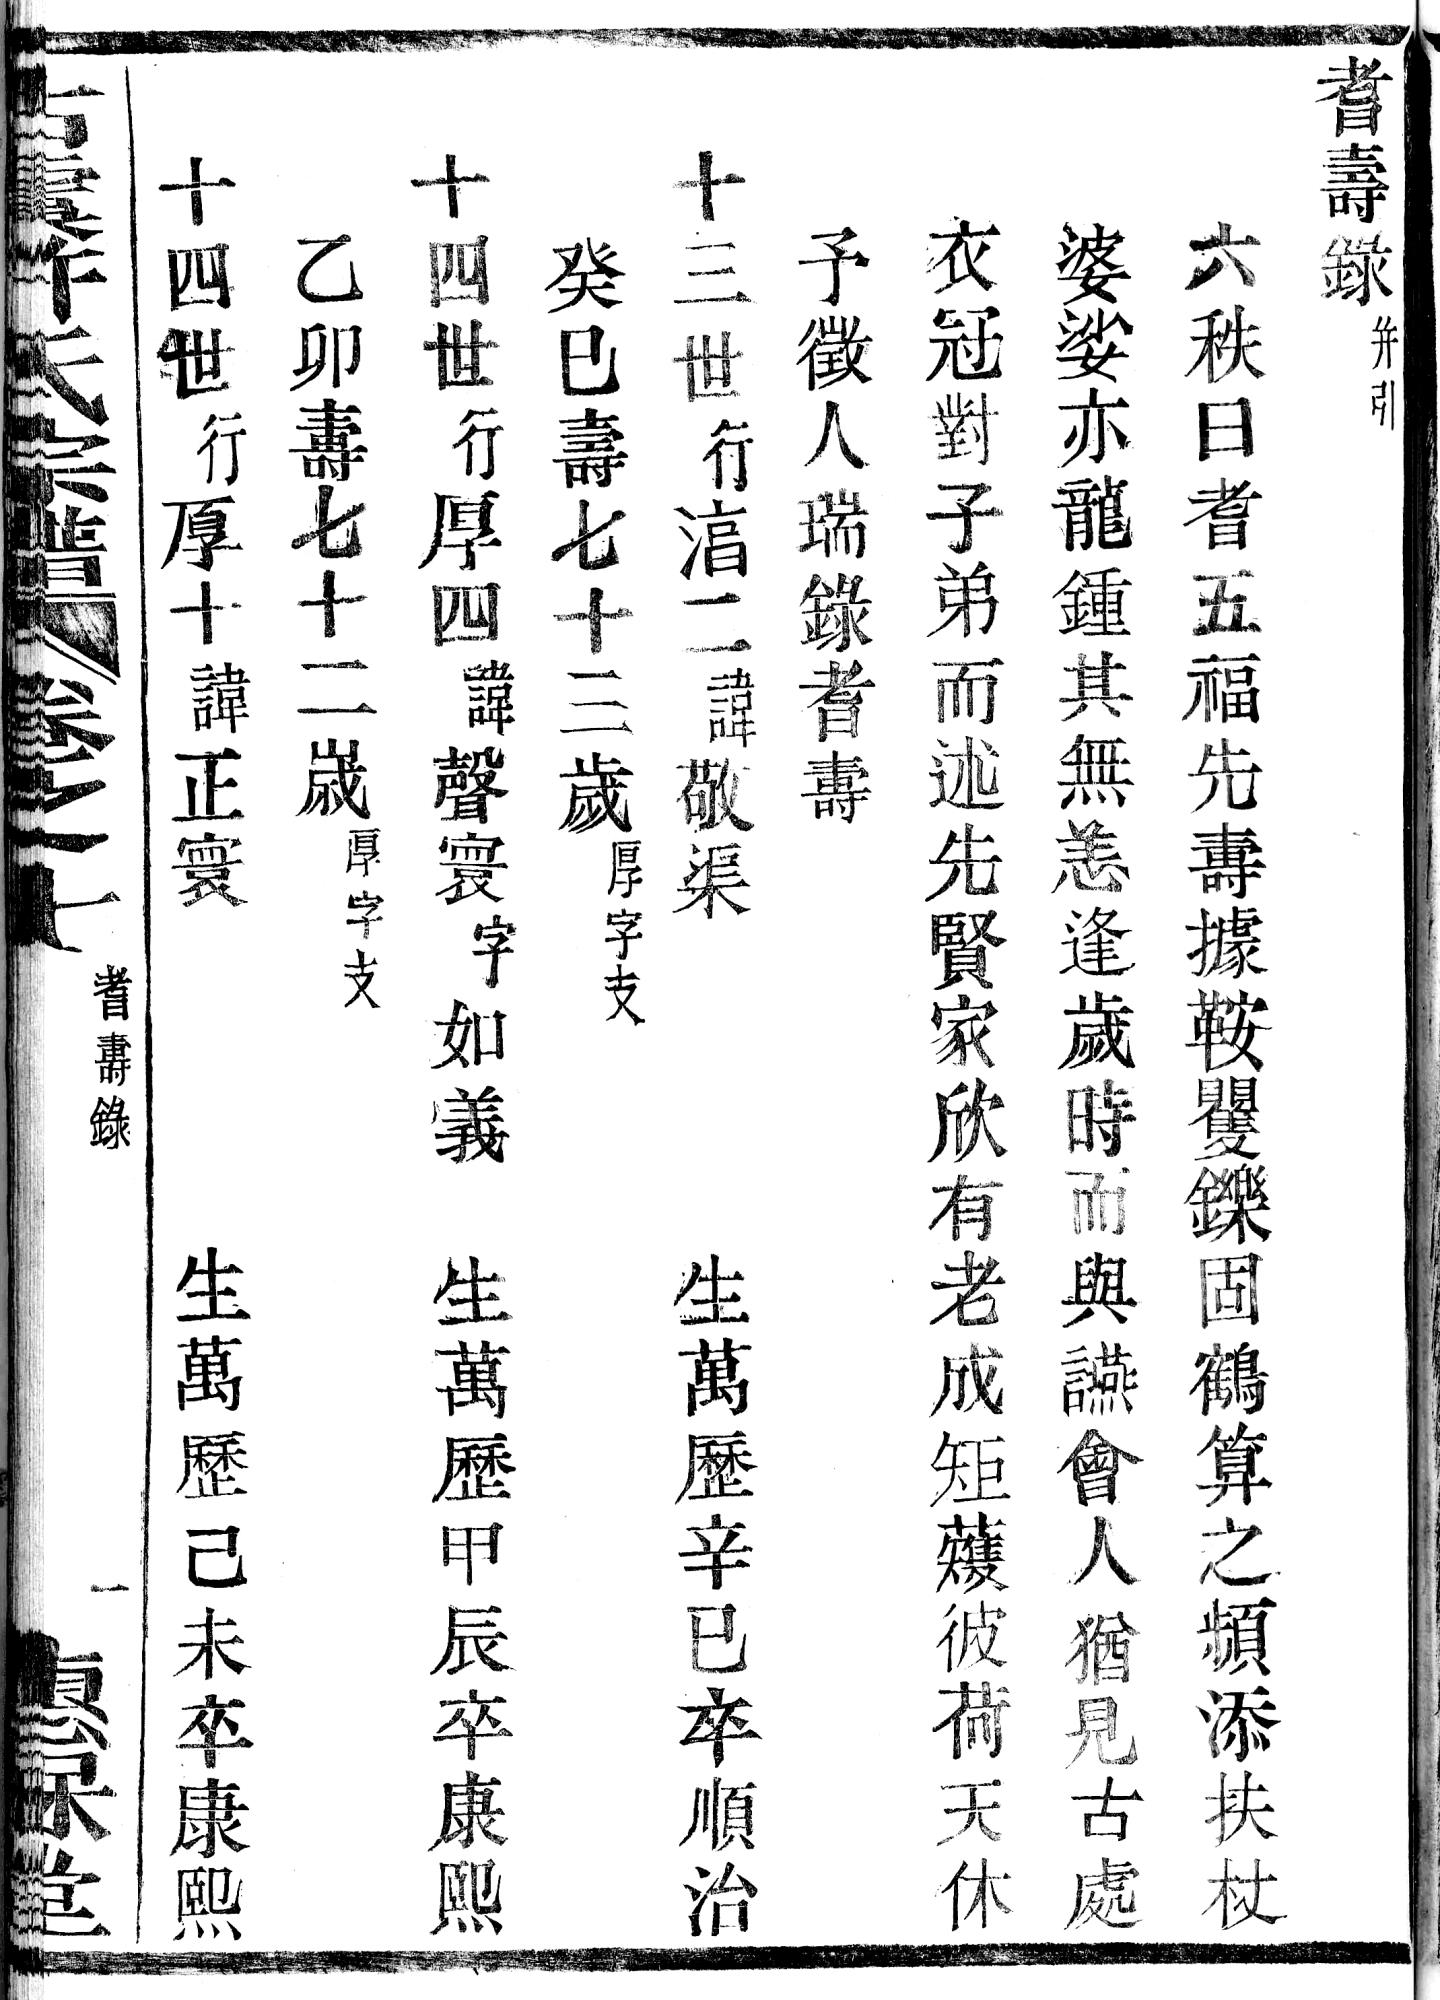 耆壽錄 并引
六秩曰耆五福先壽據鞍矍鑠固鶴算之頻添扶杖
婆娑亦龍鍾其無恙逢歲時而與讌會人猶見古處
衣冠對子弟而述先賢家欣有老成矩矱彼荷天休
予徵人瑞錄耆壽
十三世行湻二諱敬渠 生萬歷辛巳卒順治
癸巳壽七十三歲 厚字支
十四世行厚四諱聲寰字如義 生萬歷甲辰卒康熙
乙卯壽七十二歲 厚字支
十四世行厚十諱正寰 生萬歷己未卒康熙
氏宗譜 卷之十 耆壽錄 一 惠保堂